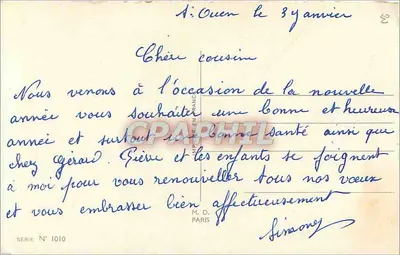 St Ouen le 3 janvier
Chère cousine
Nous venons à l'occasion de la nouvelle
année vous souhaiter une bonne et heureuse
année et surtout une bonne santé ainsi que
chez Gérard. Pière et les enfants se joignent
à moi pour vous renouveller tous nos vœux
et vous embrasser bien affectueusement
Simone
M. D.
PARIS
SERIE N° 1010
CPAPHIL